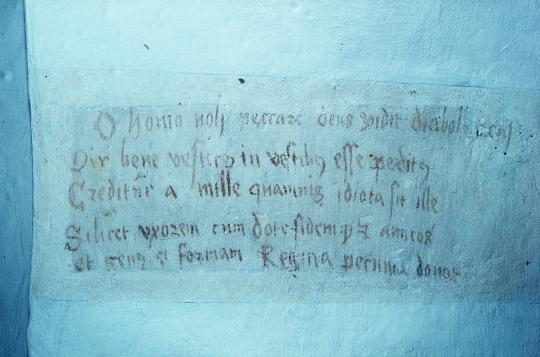 O homo noli peccare deus vidit diabol
Vir bene vestitus in vestibus esse peritus
Creditur a mille quamvis idiota sit ille
Scilicet uxorem cum dote fidemque et amicos
et genus et formam Regina pecunia donat